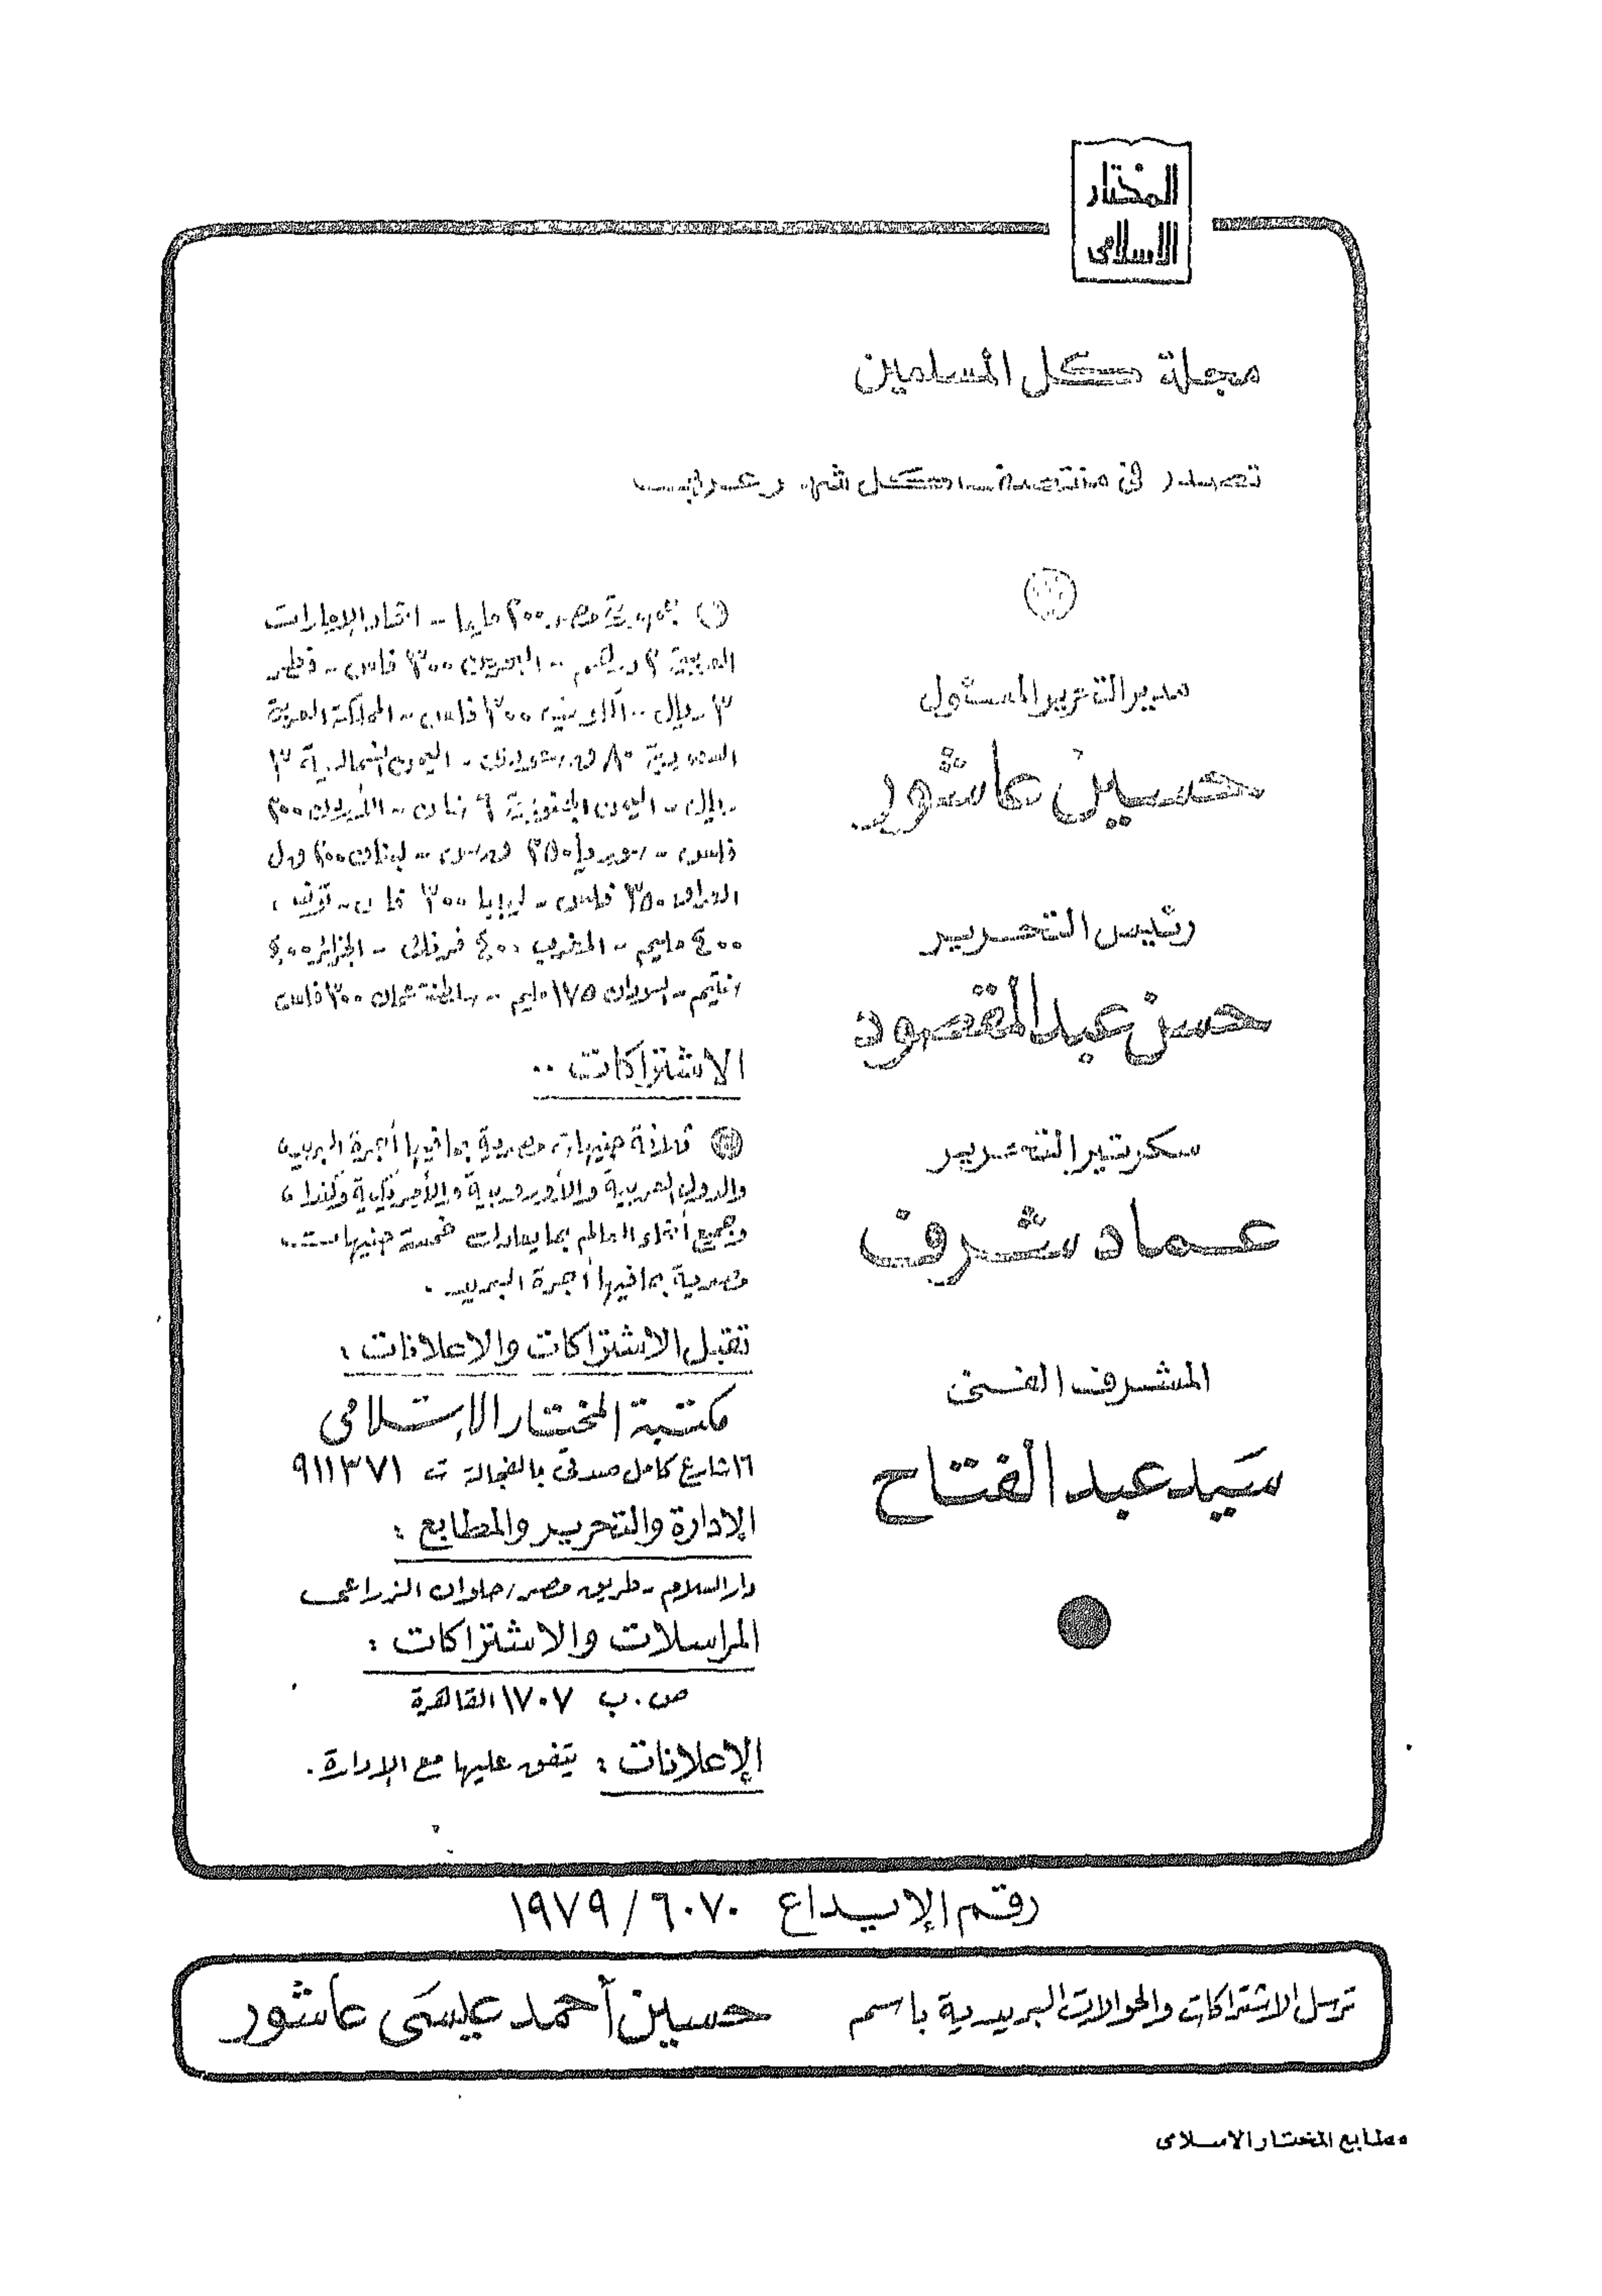 المختار
الاسلامى
مجلة كل المسلمين
تصدر فى منتصف كل شهر عربى
مدير التحرير المسئول
حسين عاشور
رئيس التحرير
حسن عبد المقصود
سكرتير التحرير
عماد شرف
المشرف الفنى
سيد عبد الفتاح
جمهورية مصر ٢٠٠ مليما - اتحاد الإمارات
العربية ٣ درهم - البحرين ٣٠٠ فلس - قطر
٣ ريال - الكويت ٣٠٠ فلس - المملكة العربية
السعودية - اليمن الشمالية ٣
ريال - اليمن الجنوبية - الأردن ٢٠٠
فلس - سوريا ٢٥٠ قرش - لبنان ٢٠٠ ق.ل
العراق ٣٥٠ فلس - ليبيا ٣٠٠ - تونس
٤٠٠ مليم - المغرب ٤٠٠ فرنك - الجزائر
- السودان ١٧٥ مليم - سلطنة عمان ٣٠٠ فلس
الاشتراكات ..
ثلاثة جنيهات مصرية بما فيها أجرة البريد
والدول العربية والأوروبية والأمريكية وكندا
وجميع أنحاء العالم بما يعادل خمسة جنيهات
مصرية بما فيها أجرة البريد .
تقبل الاشتراكات والاعلانات :
مكتبة المختار الإسلامى
١٦ شارع كامل صدقى بالفجالة ت ٩١١٣٧١
الإدارة والتحرير والمطابع :
دار السلام - طريق مصر / حلوان الزراعى
المراسلات والاشتراكات :
ص . ب ١٧٠٧ القاهرة
الإعلانات : يتفق عليها مع الإدارة .
رقم الإيداع ٦٠٧٠ / ١٩٧٩
ترسل الاشتراكات والحوالات البريدية باسم حسين أحمد عيسى عاشور
مطابع المختار الاسلامى